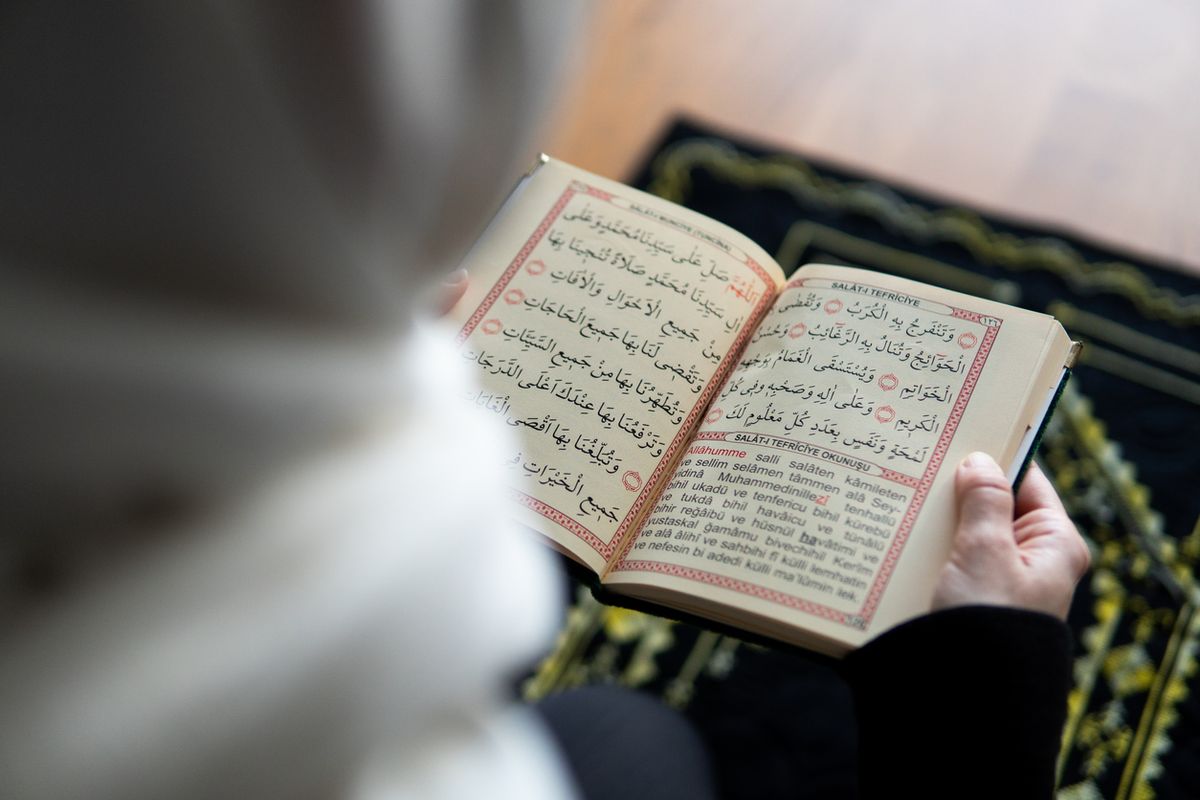 SALÂT-I TEFRÎCİYE
وَتَنْفَرِجُ بِهِ الْكُرَبُ وَتُقْضٰى
الْحَوَائِجُ وَتُنَالُ بِهِ الرَّغَائِبُ وَحُسْنُ
الْخَوَاتِمِ وَيُسْتَسْقَى الْغَمَامُ بِوَجْهِهِ
الْكَرِيمِ وَعَلٰى اٰلِهِ وَصَحْبِهِ وَفِى كُلِّ
لَمْحَةٍ وَنَفَسٍ بِعَدَدِ كُلِّ مَعْلُومٍ لَكَ
SALÂT-I TEFRÎCİYE OKUNUŞU
Allâhumme salli salâten kâmileten
ve sellim selâmen tâmmen alâ Sey-
yidinâ Muhammedinillezî tenhallü
bihil ukadü ve tenfericu bihil kürebü
ve tukdâ bihil havâicu ve tünâlü
bihir reğâibü ve hüsnül havâtimi ve
yustaskal ğamâmu bivechihil Kerîm
ve alâ âlihî ve sahbihi fî külli lemhatin
ve nefesin bi adedi külli ma'lûmin lek.
SALÂT-I MÜNCİYE (TÜNCÎNA)
اَللّٰهُمَّ صَلِّ عَلٰى سَيِّدِنَا مُحَمَّدٍ وَعَلٰى
اٰلِ سَيِّدِنَا مُحَمَّدٍ صَلَاةً تُنْجِينَا بِهَا
مِنْ جَمِيعِ الْاَحْوَالِ وَالْاٰفَاتِ
وَتَقْضِى لَنَا بِهَا جَمِيعَ الْحَاجَاتِ
وَتُطَهِّرُنَا بِهَا مِنْ جَمِيعِ السَّيِّئَاتِ
وَتَرْفَعُنَا بِهَا عِنْدَكَ اَعْلَى الدَّرَجَاتِ
وَتُبَلِّغُنَا بِهَا اَقْصَى الْغَايَاتِ
جَمِيعِ الْخَيْرَاتِ فِى